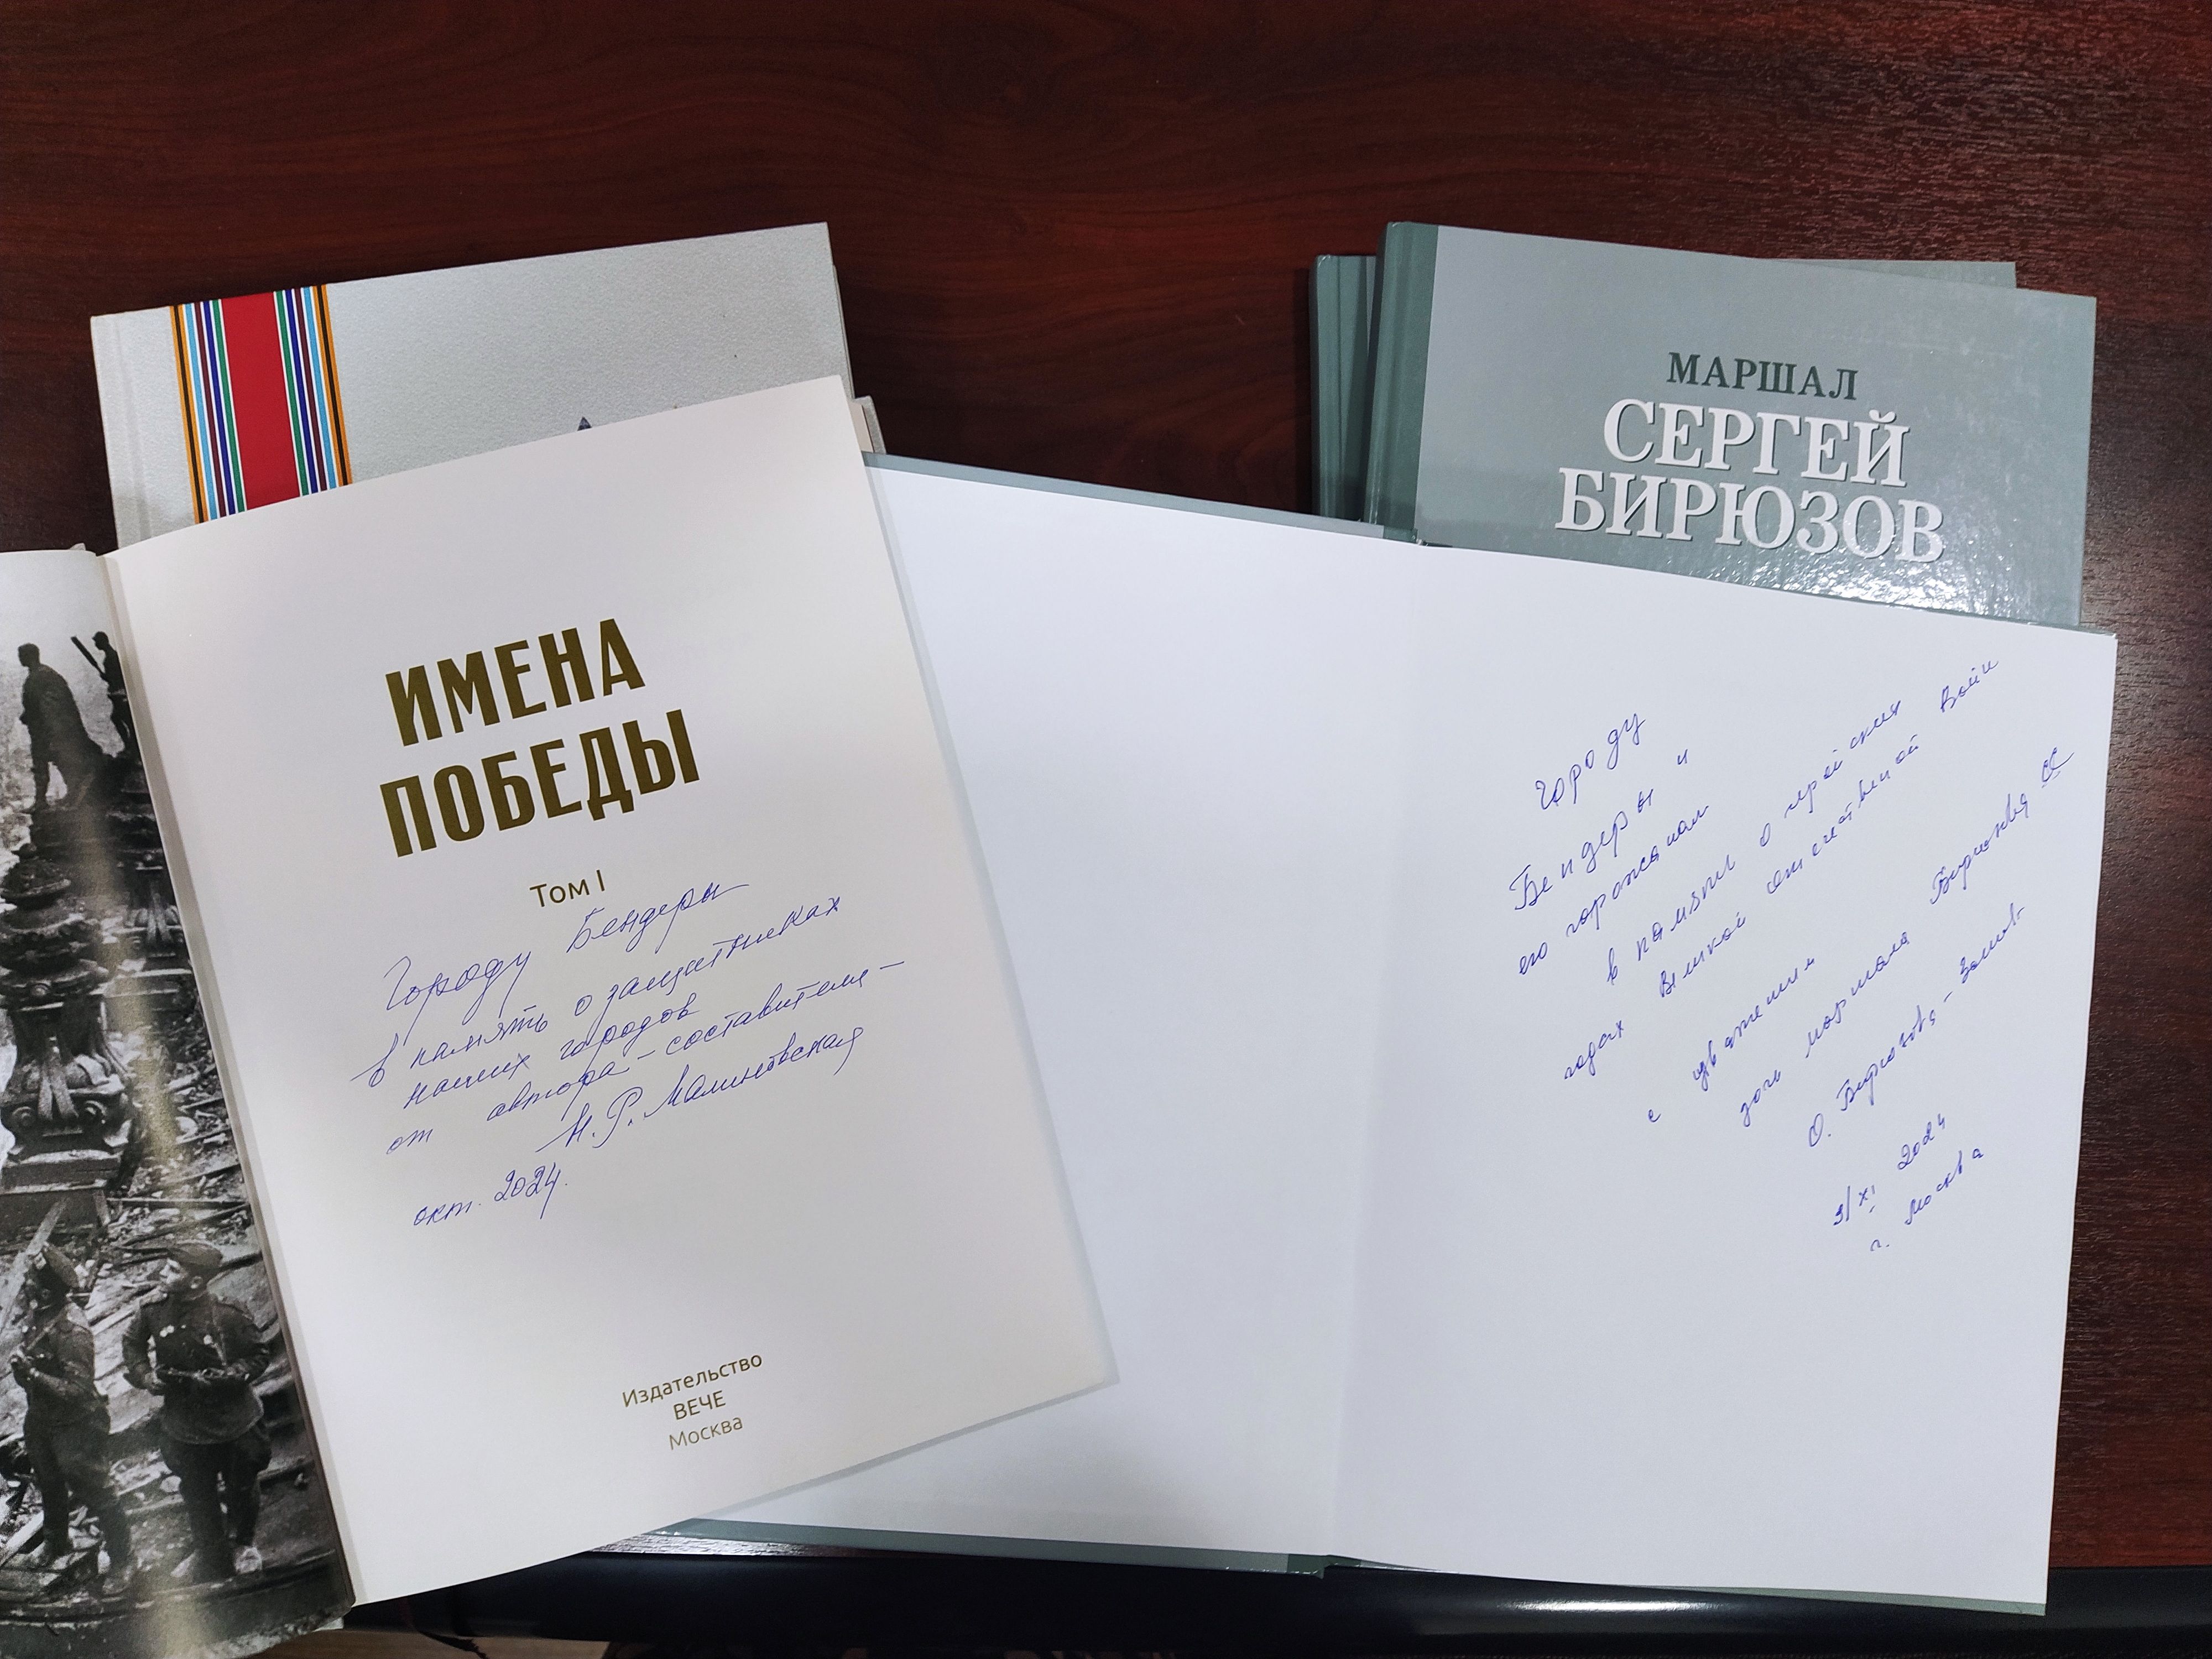 МАРШАЛ
СЕРГЕЙ
БИРЮЗОВ
ИМЕНА
ПОБЕДЫ
Том I
Городу Бендеры
в память о защитниках
наших городов
от автора-составителя –
Н.Р. Малиновская
окт. 2024.
Издательство
ВЕЧЕ
Москва
Городу
Бендеры и
его горожанам
в память о геройских
годах Великой отечественной войны
с уважением
дочь маршала Бирюзова СС
О. Бирюзова -
3/XI 2024
г. Москва